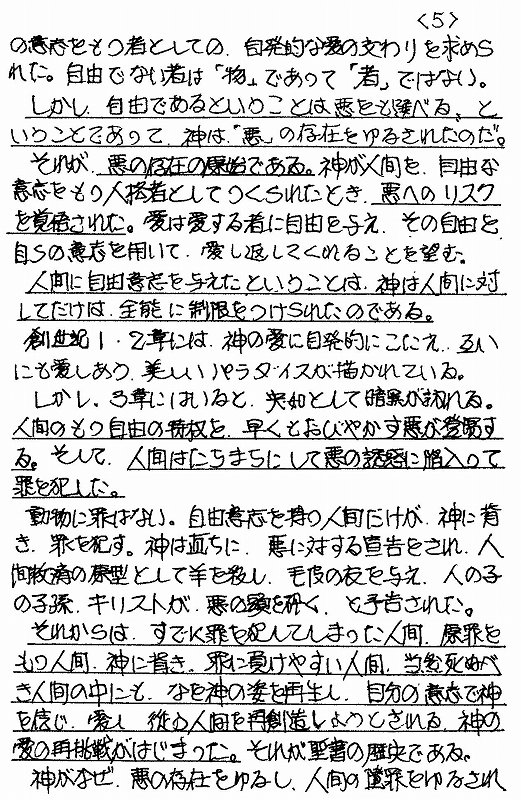 <5>
の意志をもつ者としての、自発的な愛の交わりを求めら
れた。自由でない者は「物」であって「者」ではない。
しかし、自由であるということは悪をも選べる、と
いうことであって、神は「悪」の存在をゆるされたのだ。
それが、悪の存在の原始である。神が人間を、自由な
意志をもつ人格者としてつくられたとき、悪へのリスク
を覚悟された。愛は愛する者に自由を与え、その自由を
自らの意志を用いて、愛し返してくれることを望む。
人間に自由意志を与えたということは、神は人間に対
してだけは、全能に制限をつけられたのである。
創世紀1・2章には、神の愛に自発的にこたえ、互い
にも愛しあう、美しいパラダイスが描かれている。
しかし、3章にはいると、突如として暗黒が訪れる。
人間のもつ自由の特権を、早くもおびやかす悪が登場す
る。そして、人間はたちまちにして悪の誘惑に陥入って
罪を犯した。
動物に罪はない。自由意志を持つ人間だけが、神に背
き、罪を犯す。神は直ちに、悪に対する宣告をされ、人
間救済の原型として羊を殺し、毛皮の衣を与え、人の子
の子孫、キリストが、悪の頭を砕く、と予告された。
それからは、すでに罪を犯してしまった人間、原罪を
もつ人間、神に背き、罪に負けやすい人間、当然死ぬべ
き人間の中にも、なを神の姿を再生し、自分の意志で神
を信じ、愛し、従う人間を再創造しようとされる、神の
愛の再挑戦がはじまった。それが聖書の歴史である。
神がなぜ、悪の存在をゆるし、人間の堕罪をゆるされ